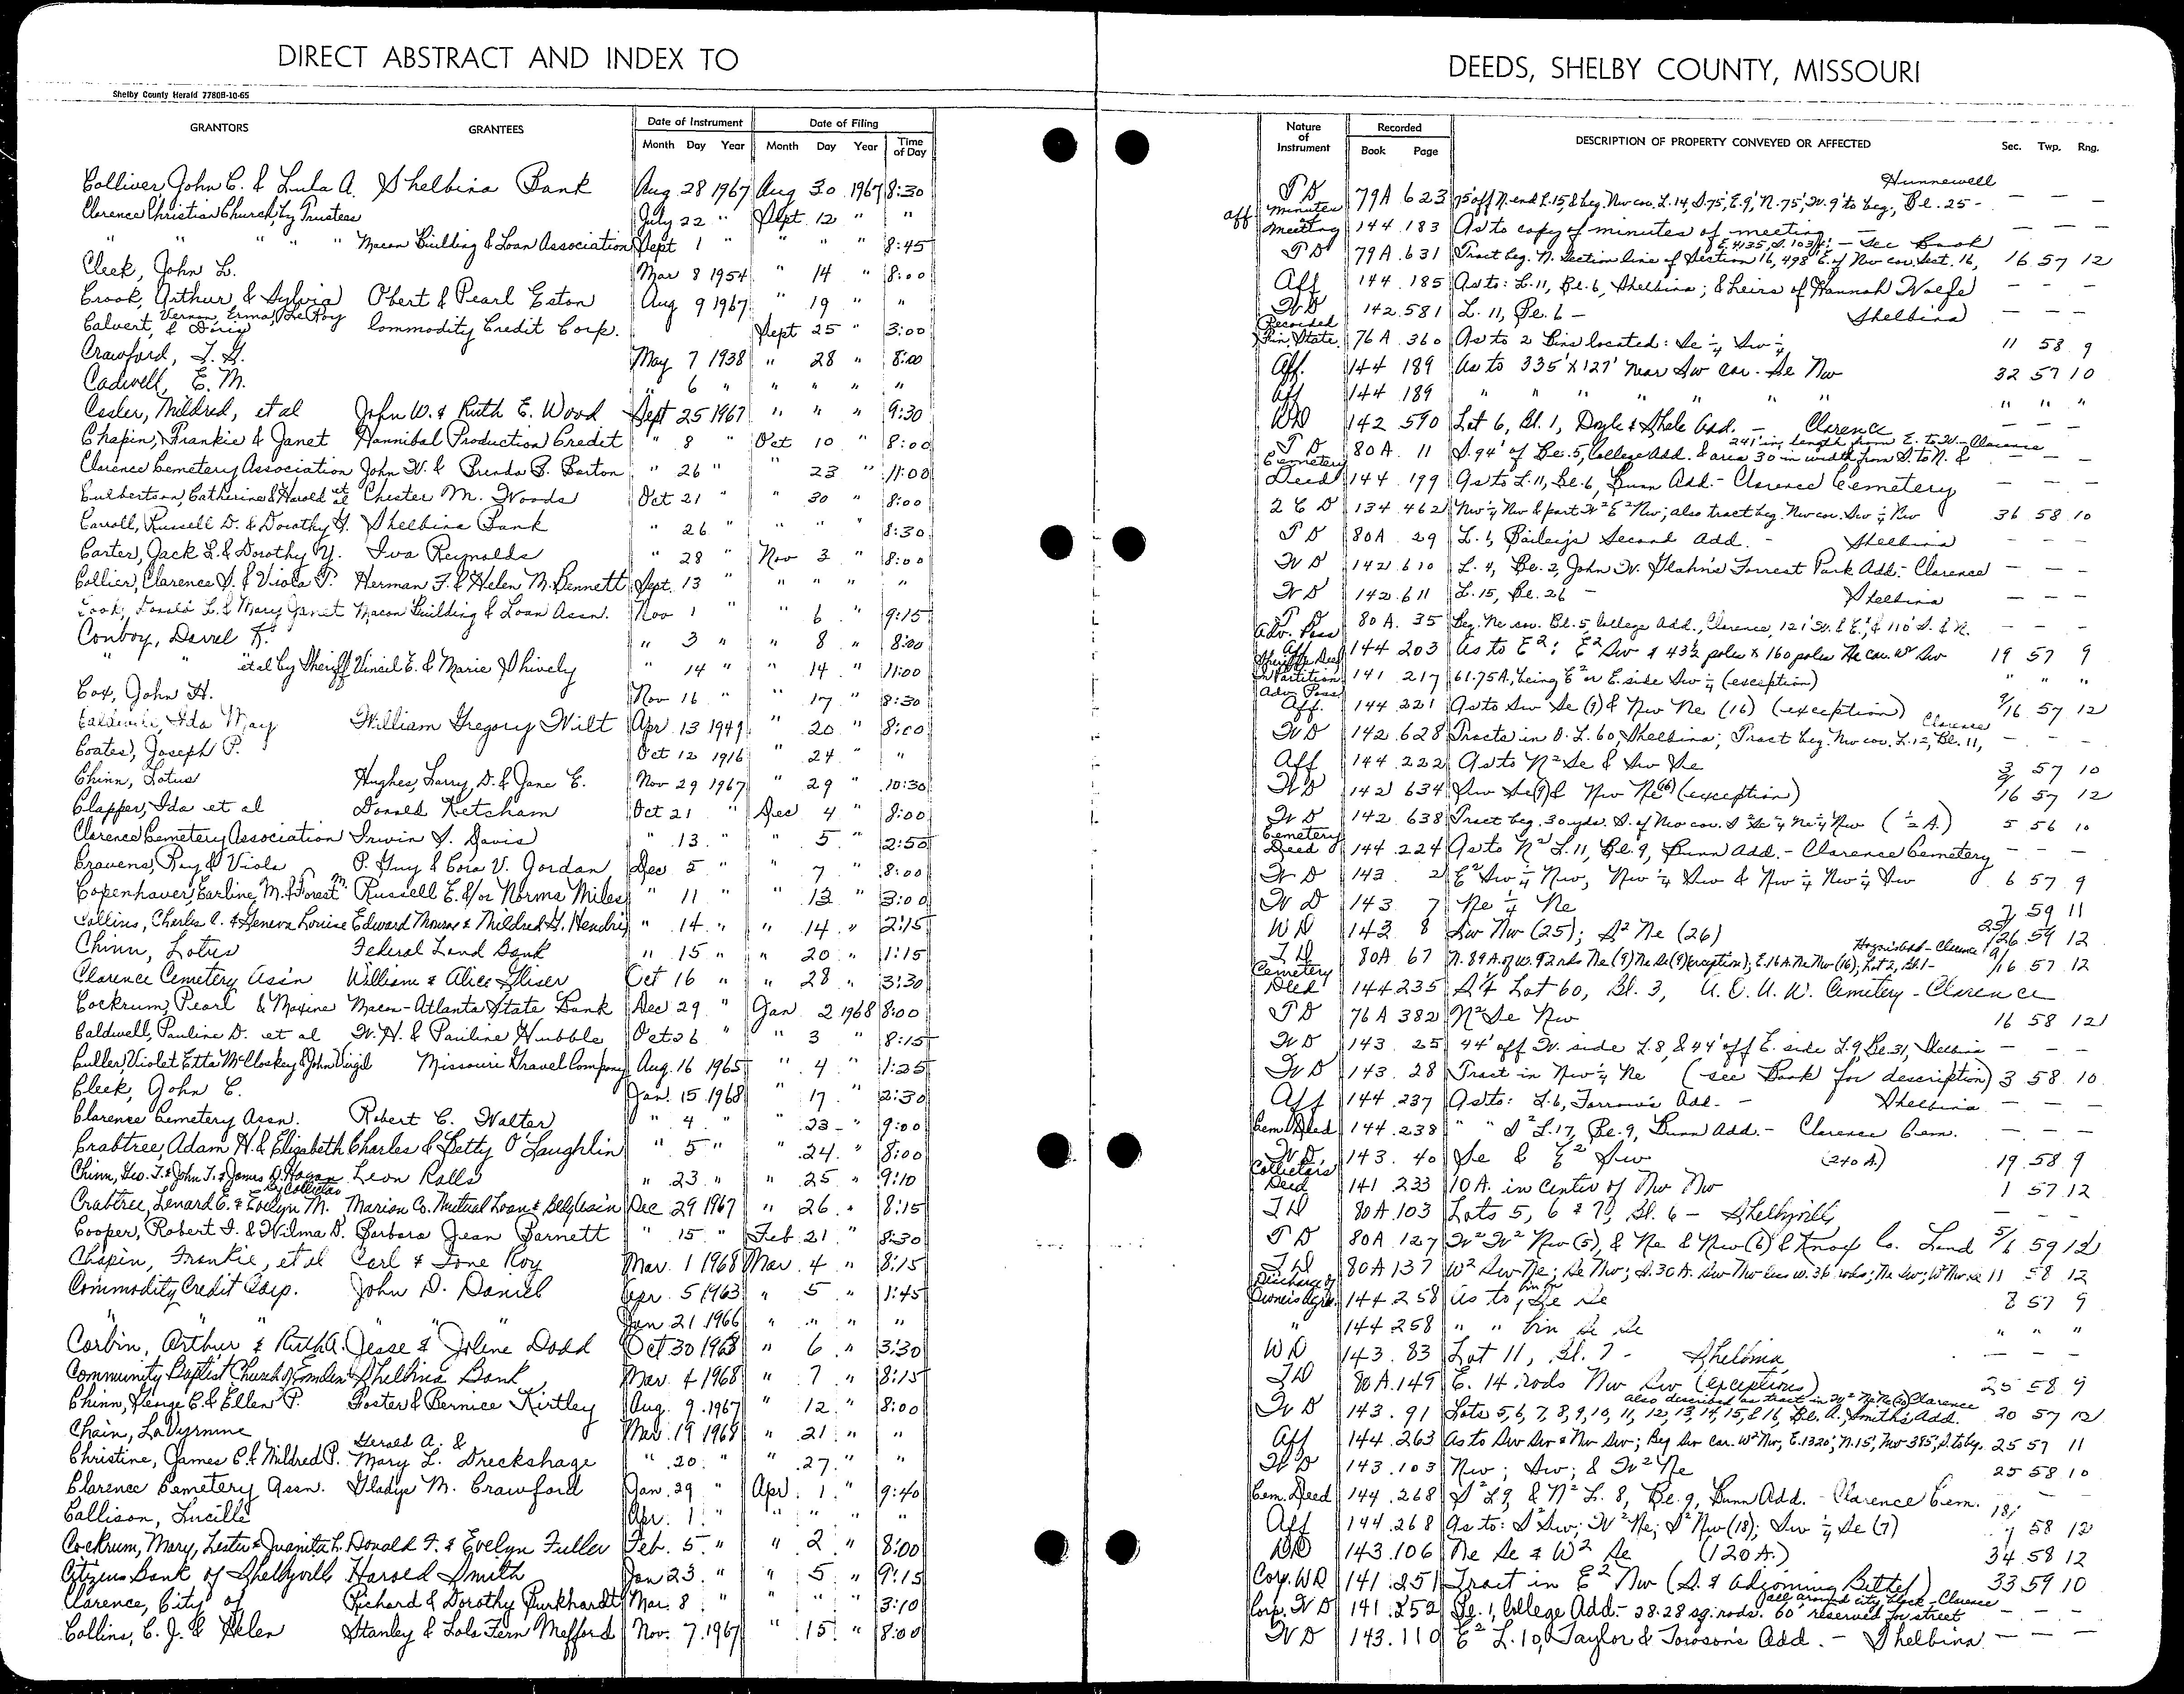 DIRECT ABSTRACT AND INDEX TO
Shelby County Herald 7780B-10-65
GRANTORS GRANTEES Date of Instrument Date of Filing
Month Day Year Month Day Year Time of Day
Colliver John C. & Lula A. Shelbina Bank Aug 28 1967 Aug 30 1967 8:30
Clarence Christian Church, by Trustees July 22 " Sept. 12 " "
" " " " Macon Building & Loan Association Sept 1 " " " " 8:45
Cleek, John L. Mar 8 1954 " 14 " 8:00
Crook, Arthur, & Sylvia Obert & Pearl Eston Aug 9 1967 " 19 " "
Calvert, Vernon, Erma, LeRoy & Doris Commodity Credit Corp. Sept 25 " 3:00
Crawford, May 7 1938 " 28 " 8:00
Cadwell, E. M. " 6 " " " " "
Casler, Mildred, et al John W. & Ruth E. Wood Sept 25 1967 " " " 9:30
Chapin, Frankie & Janet Hannibal Production Credit " 8 " Oct 10 " 8:00
Clarence Cemetery Association John W. & Brenda Barton " 26 " " 23 " 11:00
Culbertson, Catherine & Harold et al Chester M. Woods Oct 21 " " 30 " 8:00
Carroll, Russell D. & Dorothy Shelbina Bank " 26 " " " " 8:30
Carter, Jack L. & Dorothy Y. Iva Reynolds " 28 " Nov 3 " 8:00
Collier, Clarence & Viola Herman F. & Helen M. Bennett Sept. 13 " " " " "
Cook, Donald L. & Mary Janet Macon Building & Loan Assn. Nov 1 " " 6 " 9:15
Conboy, Darrel K. " 3 " " 8 " 8:00
" " et al by Sheriff Vincil E. & Marie Shively " 14 " " 14 " 11:00
Cox, John H. Nov 16 " " 17 " 8:30
Caldwell, Ida May William Gregory Wilt Apr 13 1949 " 20 " 8:00
Coates, Joseph P. Oct 12 1916 " 24 " "
Chinn, Lotus Hughes, Harry D. & Jane E. Nov 29 1967 " 29 " 10:30
Clapper, Ida et al Donald Ketcham Oct 21 " Dec 4 " 8:00
Clarence Cemetery Association Irwin Davis " 13 " " 5 " 2:50
Cravens, Ray & Viola P. Guy & Cora V. Gordan Dec 5 " " 7 " 8:00
Copenhaver, Earline M. & Forest M. Russell E. &/or Norma Miles " 11 " " 13 " 3:00
Collins, Charles A. & Geneva Louise Edward Monroe & Mildred Hendrix " 14 " " 14 " 2:15
Chinn, Lotus Federal Land Bank " 15 " " 20 " 1:15
Clarence Cemetery Ass'n William & Alice Oct 16 " " 28 " 3:30
Cockrum, Pearl & Maxine Macon-Atlanta State Bank Dec 29 " Jan 2 1968 8:00
Caldwell, Pauline D. et al W. H. & Pauline Hubble Oct 26 " " 3 " 8:15
Culler, Violet Etta McCloskey & John Virgil Missouri Gravel Company Aug. 16 1965 " 4 " 1:25
Cleek, John C. Jan. 15 1968 " 17 " 2:30
Clarence Cemetery Assn. Robert C. Walter " 4 " " 23 " 9:00
Crabtree, Adam H. & Elizabeth Charles & Betty O'Laughlin " 5 " " 24 " 8:00
Chinn, Geo. T. & John T. & James D. Hagan by Collector Leon Ralls " 23 " " 25 " 9:10
Crabtree, Lenard E. & Evelyn M. Marion Co. Mutual Loan & Bldg Ass'n Dec 29 1967 " 26 " 8:15
Cooper, Robert & Wilma D. Barbara Jean Barnett " 15 " Feb. 21 " 8:30
Chapin, Frankie, et al Carl & Ione Roy Mar. 1 1968 Mar. 4 " 8:15
Commodity Credit Corp. John D. Daniel Apr. 5 1963 " 5 " 1:45
" " " " " Jan 21 1966 " " " "
Corbin, Arthur & Ruth A. Jesse & Jolene Dodd Oct 30 1963 " 6 " 3:30
Community Baptist Church of Emden Shelbina Bank Mar. 4 1968 " 7 " 8:15
Chinn, George C. & Ellen P. Foster & Bernice Kirtley Aug. 9 1967 " 12 " 8:00
Chain, LaVyrnne Mar. 19 1968 " 21 " "
Christine, James C. & Mildred P. Gerald A. & Mary L. Dreckshage " 20 " " 27 " "
Clarence Cemetery Assn. Gladys M. Crawford Jan. 29 " Apr. 1 " 9:40
Callison, Lucille Apr. 1 " " " " "
Cockrum, Mary, Lester & Juanita L. Donald F. & Evelyn Fuller Feb. 5 " " 2 " 8:00
Citizens Bank of Shelbyville Harold Smith Jan 23 " " 5 " 9:15
Clarence, City of Richard & Dorothy Burkhardt Mar. 8 " " " " 3:10
Collins, C. J. & Helen Stanley & Lola Fern Mefford Nov. 7 1967 " 15 " 8:00
DEEDS, SHELBY COUNTY, MISSOURI
Nature of Instrument Recorded Book Page DESCRIPTION OF PROPERTY CONVEYED OR AFFECTED Sec. Twp. Rng.
Hunnewell
T D 79A 623 75' off N. end L.15, & beg. Nw cor. L.14, S.75', E.9', N.75', W.9' to beg., Bl. 25 - — — —
aff Minutes Meeting 144 183 As to copy of minutes of meeting —
T D 79A 631 Tract beg. N. Section line of Section 16, 498' E. of Nw cor. Sect. 16, — See Book 16 57 12
Aff 144 185 As to: L.11, Bl. 6, Shelbina; & heirs of Hannah Wolfe — — —
W D 142 581 L. 11, Bl. 6 - Shelbina — — —
Recorded 76A 360 As to 2 Bins located: Se ¼ Sw ¼ 11 58 9
Aff. 144 189 As to 335' x 127' near Sw cor. Se Nw 32 57 10
Aff 144 189 " " " " " " " "
WD 142 590 Lot 6, Bl. 1, Doyle & Shale Add. - Clarence — — —
T D 80A 11 S. 94' of Bl. 5, College Add. & area 30' in width from S. to N. & 241' in length from E. to W. - Clarence — — —
Cemetery Deed 144 199 As to L.11, Bl. 6, Bunn Add. - Clarence Cemetery — — —
2 C D 134 462 Nw ¼ Nw & part W² E² Nw; also tract beg. Nw cor. Sw ¼ Nw 36 58 10
T D 80A 29 L. 6, Bailey's Second Add. - Shelbina — — —
W D 142 610 L. 4, Bl. 2, John W. Glahn's Forrest Park Add. - Clarence — — —
W D 142 611 L. 15, Bl. 26 - Shelbina — — —
T D 80 A. 35 Beg. Ne cor. Bl. 5 College Add., Clarence, 121' W. & E. & 110' S. & N. — — —
Adv. Poss Aff 144 203 As to E²; E² Sw & 43½ poles x 160 poles Ne cor. W² Sw 19 57 9
Sheriff's Deed In Partition 141 217 61.75 A, being E² or E. side Sw ¼ (exception) " " "
Adv. Poss Aff. 144 221 As to Sw Se (9) & Nw Ne (16) (exception) 9/16 57 12
W D 142 628 Tracts in O. L. 60, Shelbina; Tract beg. Nw cor. L.12, Bl. 11, Clarence — — —
Aff 144 222 As to N² Se & Sw Se 3 57 10
W D 142 634 Sw Se (9) & Nw Ne (16) (exception) 9/16 57 12
W D 142 638 Tract beg. 30 yds. S. of Nw cor. S² Se ¼ Ne ¼ Nw (½ A.) 5 56 10
Cemetery Deed 144 224 As to N² L.11, Bl. 9, Bunn Add. - Clarence Cemetery — — —
W D 143 2 E² Sw ¼ Nw, Nw ¼ Sw & Nw ¼ Nw ¼ Sw 6 57 9
W D 143 7 Ne ¼ Ne 7 59 11
W D 143 8 Sw Nw (25); S² Ne (26) 25/26 59 12
T D 80A 67 N. 89 A. of W. 92 rds Ne (9) Ne Se (9) (exception); E. 16 A. Ne Nw (16); Lot 2, Bl. 1 - Clarence 9/16 57 12
Cemetery Deed 144 235 Lot 60, Bl. 3, A. O. U. W. Cemetery - Clarence
T D 76 A 382 N² Se Nw 16 58 12
W D 143 25 44' off W. side L. 8, & 44' off E. side L. 9 Bl. 31, Shelbina — — —
W D 143 28 Tract in Nw ¼ Ne (see Book for description) 3 58 10
Aff 144 237 As to: L. 6, Farrow's Add. - Shelbina — — —
Cem. Deed 144 238 " " S² L.17, Bl. 9, Bunn Add. - Clarence Cem. — — —
W D 143 40 Se & E² Sw (240 A.) 19 58 9
Collector's Deed 141 233 10 A. in Center of Nw Nw 1 57 12
T D 80A 103 Lots 5, 6 & 7, Bl. 6 - Shelbyville — — —
T D 80A 127 W² W² Nw (5), & Ne & Nw (6) & Knox Co. Land 5/6 59 12
T D 80A 137 W² Sw Ne; Se Nw; S. 30 A. Sw Nw less W. 36 rods; Ne Sw; W² Nw Se 11 58 12
Discharge of 144 258 As to bin Se Se 8 57 9
" 144 258 " " bin Se Se " " "
W D 143 83 Lot 11, Bl. 7 - Shelbina — — —
T D 80 A. 149 E. 14 rods Nw Sw (exceptions) 25 58 9
W D 143 91 Lots 5, 6, 7, 8, 9, 10, 11, 12, 13, 14, 15, & 16, Bl. A, Smith's Add. also described as tract in Clarence 20 57 12
Aff 144 263 As to Sw Sw & Nw Sw; Beg Sw cor. W² Nw, E. 1320', N. 15', Nw 385', S. to beg. 25 57 11
W D 143 103 Nw; Sw; & W² Ne 25 58 10
Cem. Deed 144 268 S² L 9, & N² L. 8, Bl. 9, Bunn Add. - Clarence Cem. — —
Aff 144 268 As to: S² Sw; W² Ne; S² Nw (18); Sw ¼ Se (7) 18/7 58 12
WD 143 106 Ne Se & W² Se (120 A.) 34 58 12
Corp. WD 141 251 Tract in E² Nw (S. & Adjoining Bethel) 33 59 10
Corp. W D 141 252 Bl. 1, College Add. - 28.28 sq. rods. 60' reserved for street all around city block - Clarence — — —
W D 143 110 E² L. 10, Taylor & Towson's Add. - Shelbina — — —